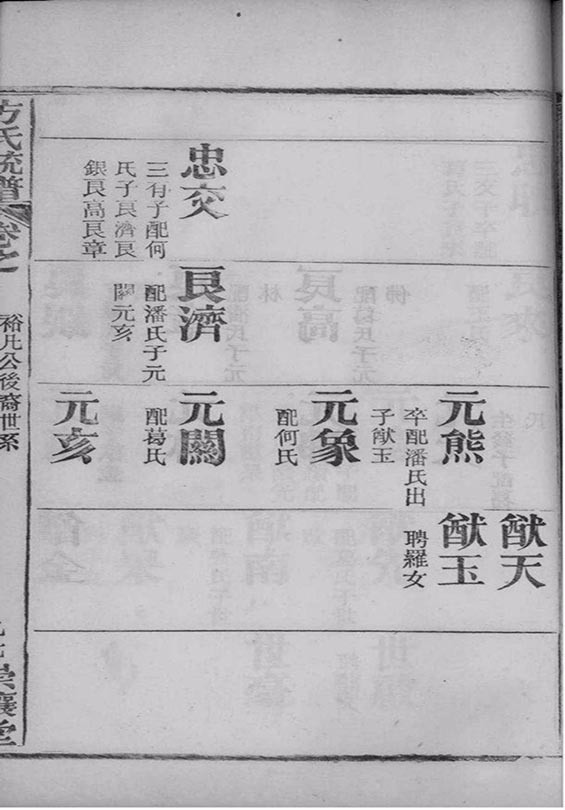 忠交
三有子配何
氏子良濟良
銀良高良章
良濟
配潘氏子元
闗元亥
元熊
卒配潘氏出
子猷玉
元象
配何氏
元闗
配葛氏
元亥
猷天
猷玉
聘羅女
方氏統譜
卷之
裕凡公後裔世系
崇讓堂